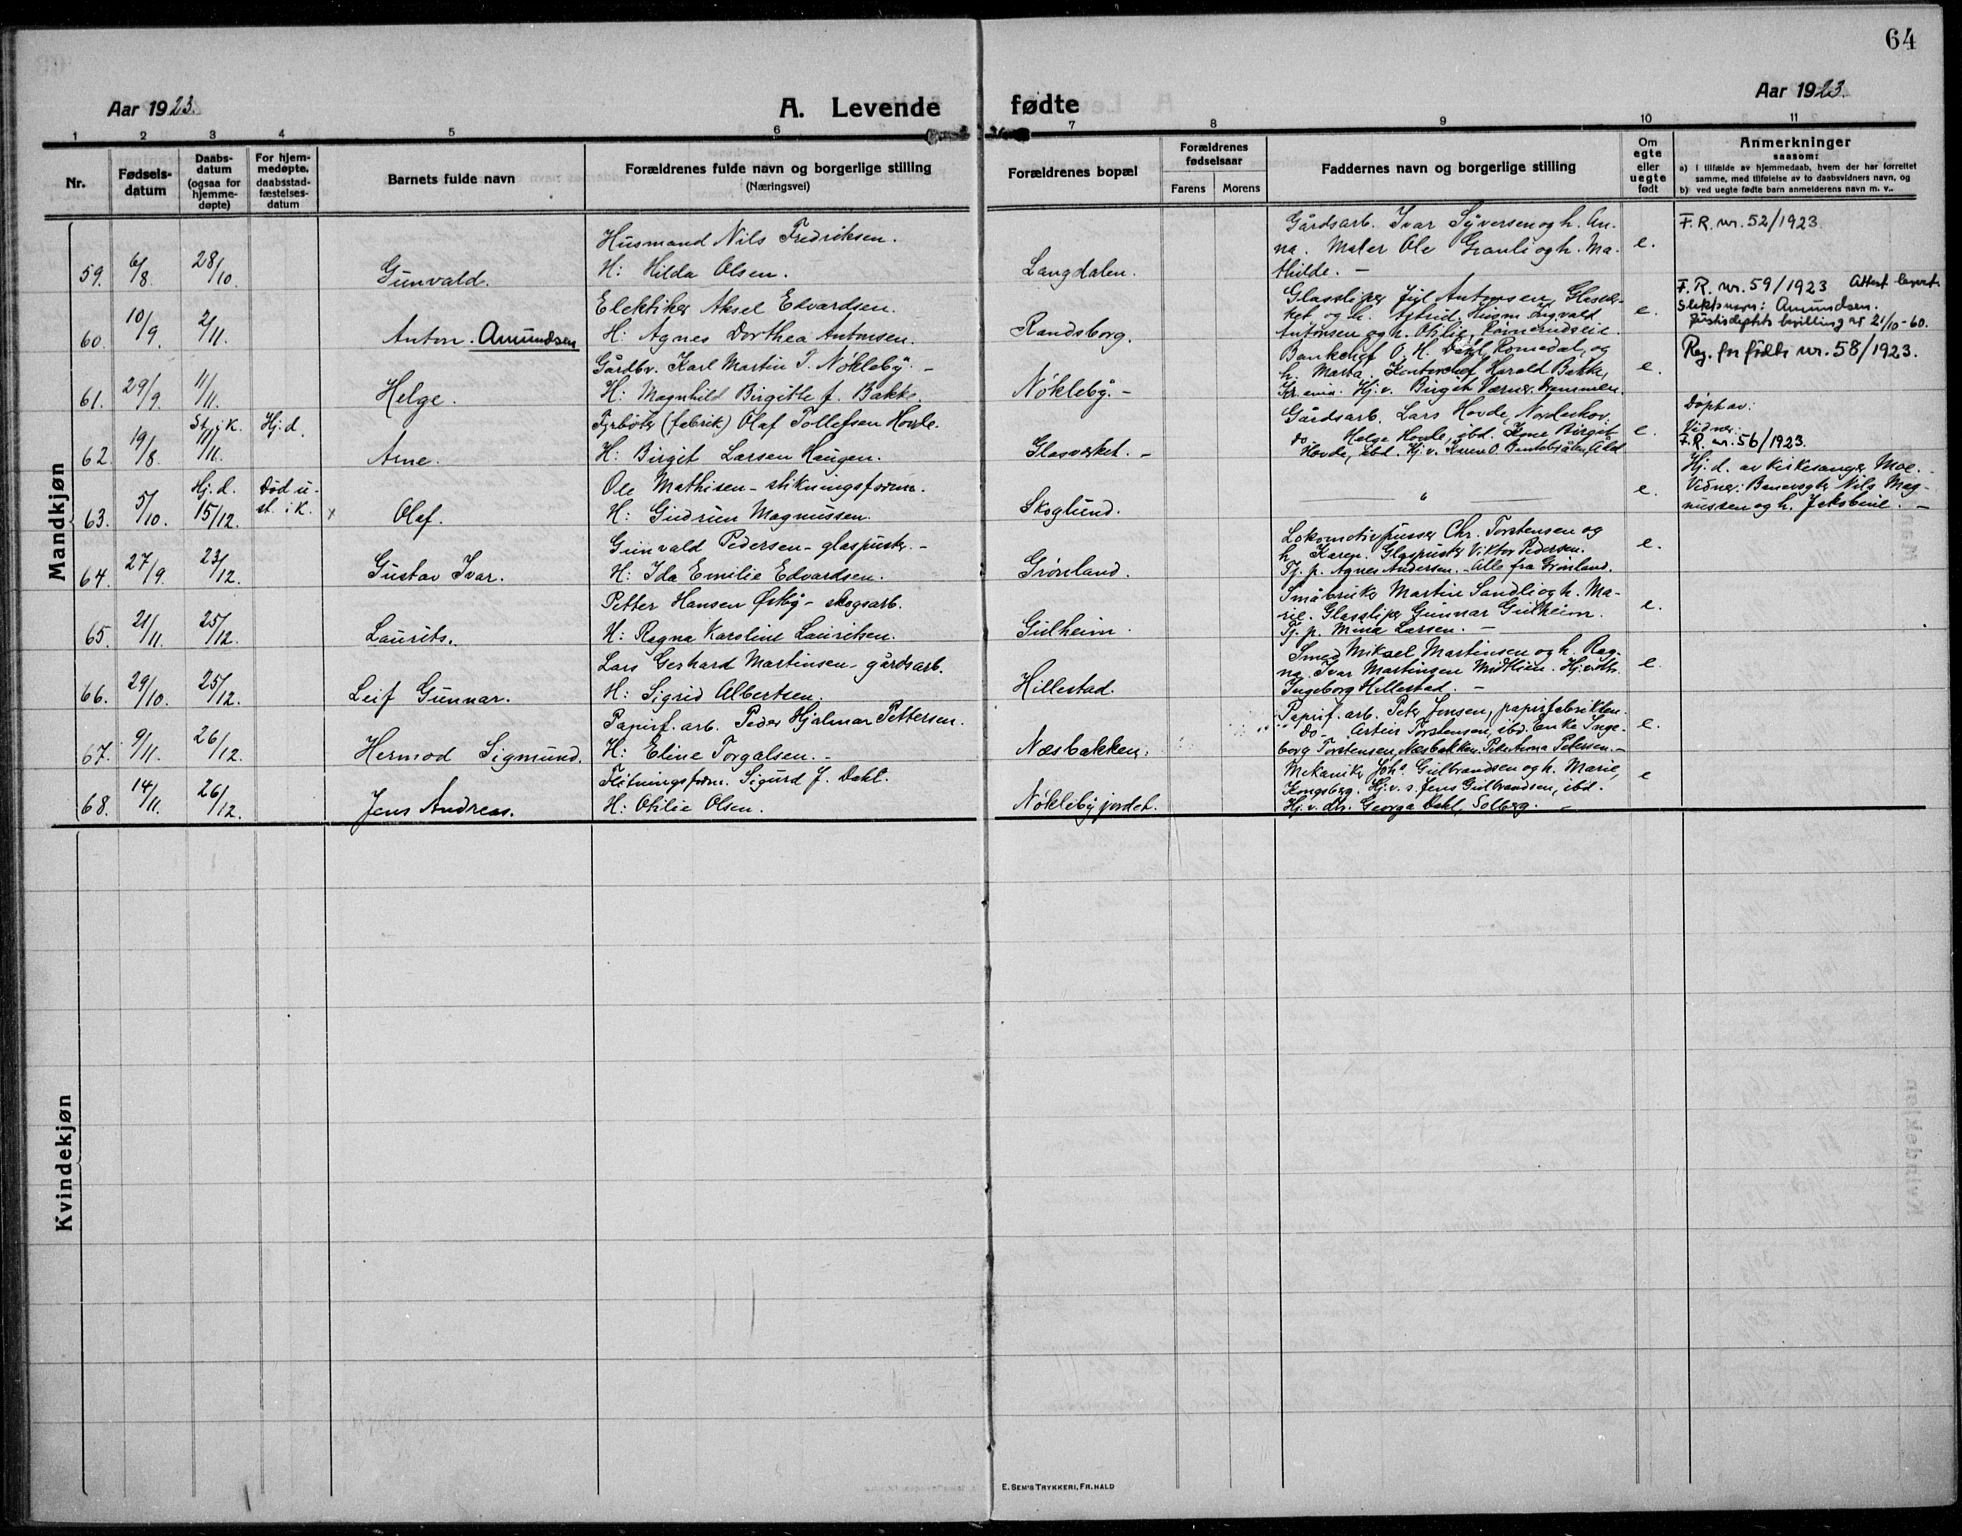 64
Aar 1923.
A. Levende fødte
Aar 1923.
1 2 3 4 5 6 7 8 9 10 11
Nr.
Fødsels-
datum
Daabs-
datum
(ogsaa for
hjemme-
døpte)
For hjem-
medøpte,
daabsstad-
fæstelses-
datum
Barnets fulde navn
Forældrenes fulde navn og borgerlige stilling
(Næringsvei)
Forældrenes bopæl
Forældrenes
fødselsaar
Farens Morens
Faddernes navn og borgerlige stilling
Om
egte
eller
uegte
født
Anmerkninger
saasom:
a) i tilfælde av hjemmedaab, hvem der har forrettet
samme, med tilføielse av to daabsvidners navn, og
b) ved uegte fødte barn anmelderens navn m. v..
Mandkjøn
59. 6/8 28/10. Gunvald.
Husmand Nils Fredriksen.
H: Hilda Olsen.
Langdalen.
Gårdsarb. Ivar Syversen og h. An-
na. Maler Ole Granli og h. Ma-
thilde. —
e.
F.R. nr. 52/1923.
60. 10/9. 2/11. Anton. Amundsen
Elektiker Aksel Edvardsen.
H: Agnes Dorthea Antonsen.
Randsborg.
Glassliper Antonsen,
ket og h. Astrid. Husm. Ingvald
Antonsen og h. Otilie,
e.
F.R. nr. 59/1923 Attest levert.
Slektsnavn: Amundsen.
Justisdeptets bevilling av 21/10-60.
61. 29/9. 11/11. Helge.
Gårdbr. Karl Martin P. Nøkleby. —
H: Magnhild Birgitte f. Bakke.
Nøkleby. —
Bankchef O. H. Dahl, Romedal, og
h. Marta. Kontorchef Harald Bakke,
Kr.ania. Hj. v. Birgit Værnes,
e.
Reg. for fødte nr. 58/1923.
62. 19/8. St. i k. 11/11. Hj. d. Arne.
Fyrbøter (fabrik) Olaf Tollefsen Hovde.
H: Birgit Larsen Haugen.
Glasverket. —
Gårdsarb. Lars Hovde, Norderhov.
do. Helge Hovde, ibd. Kone Birget
Hovde, ibd. Hj. v. Karen O.
e.
Døpt av:
Vidner:
F.R. nr. 56/1923.
63. 5/10. Hj. d. 15/12. Død u-
st. i k. x Olaf.
Ole Mathisen – stikningsform.
H: Gudrun Magnussen.
Skoglund.
— " —
e.
Hj. d. av kirkesanger Moe. —
Vidner: Banevogter Nils Mag-
nussen og h. Jakobine. —
64. 27/9. 23/12. Gustav Ivar.
Gunvald Pedersen – glaspuster. —
H: Ida Emilie Edvardsen.
Grønland.
Lokomotivpusser Chr. Torstensen og
h. Karen. Glaspuster Viktor Pedersen.
Tj. p. Agnes Andersen. – Alle fra Grønland.
e.
65. 21/11. 25/12. Laurits.
Petter Hansen Østby – skogsarb.
H: Ragna Karoline Lauritsen.
Gulheim.
Småbruker Martin Sandli og h. Ma-
rie. Glassliper Gunnar Gulheim.
Tj. p. Mina Larsen. —
e.
66. 29/10. 25/12. Leif Gunnar.
Lars Gerhard Martinsen – gårdsarb.
H: Sigrid Albertsen.
Hillestad.
Smed Mikael Martinsen og h. Rag-
na. Ivar Martinsen Midtlien. Hj.
Ingeborg Hillestad. —
e.
67. 9/11. 26/12. Hermod Sigmund.
Papirf. arb. Peder Hjalmar Pettersen.
H: Eline Torgalsen. —
Næsbakken.
Papirf. arb. Petr. Jensen, papirfabrikken.
" do. Torstensen, ibd. Enke Inge-
borg Torstensen, Næsbakken. Anna Petersen. —
e.
68. 14/11. 26/12. Jens Andreas.
Fløtningsform. Sigurd J. Dahl.
H: Otilie Olsen.
Nøklebyjordet.
Mekaniker Johs. Gulbrandsen og h. Marie,
Kongsberg. Hj. v. s. Jens Gulbrandsen, ibd.
Hj. v. dtr. Georga Dahl, Solberg. —
e
Kvindekjøn
E. SEM'S TRYKKERI, FR.HALD